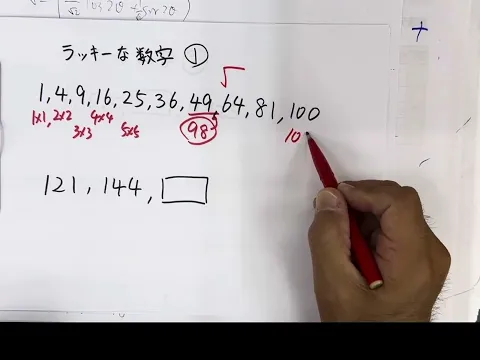 ラッキーな数字 ①
√
1, 4, 9, 16, 25, 36, 49, 64, 81, 100
1×1, 2×2 3×3 4×4 5×5 98 10
121, 144,